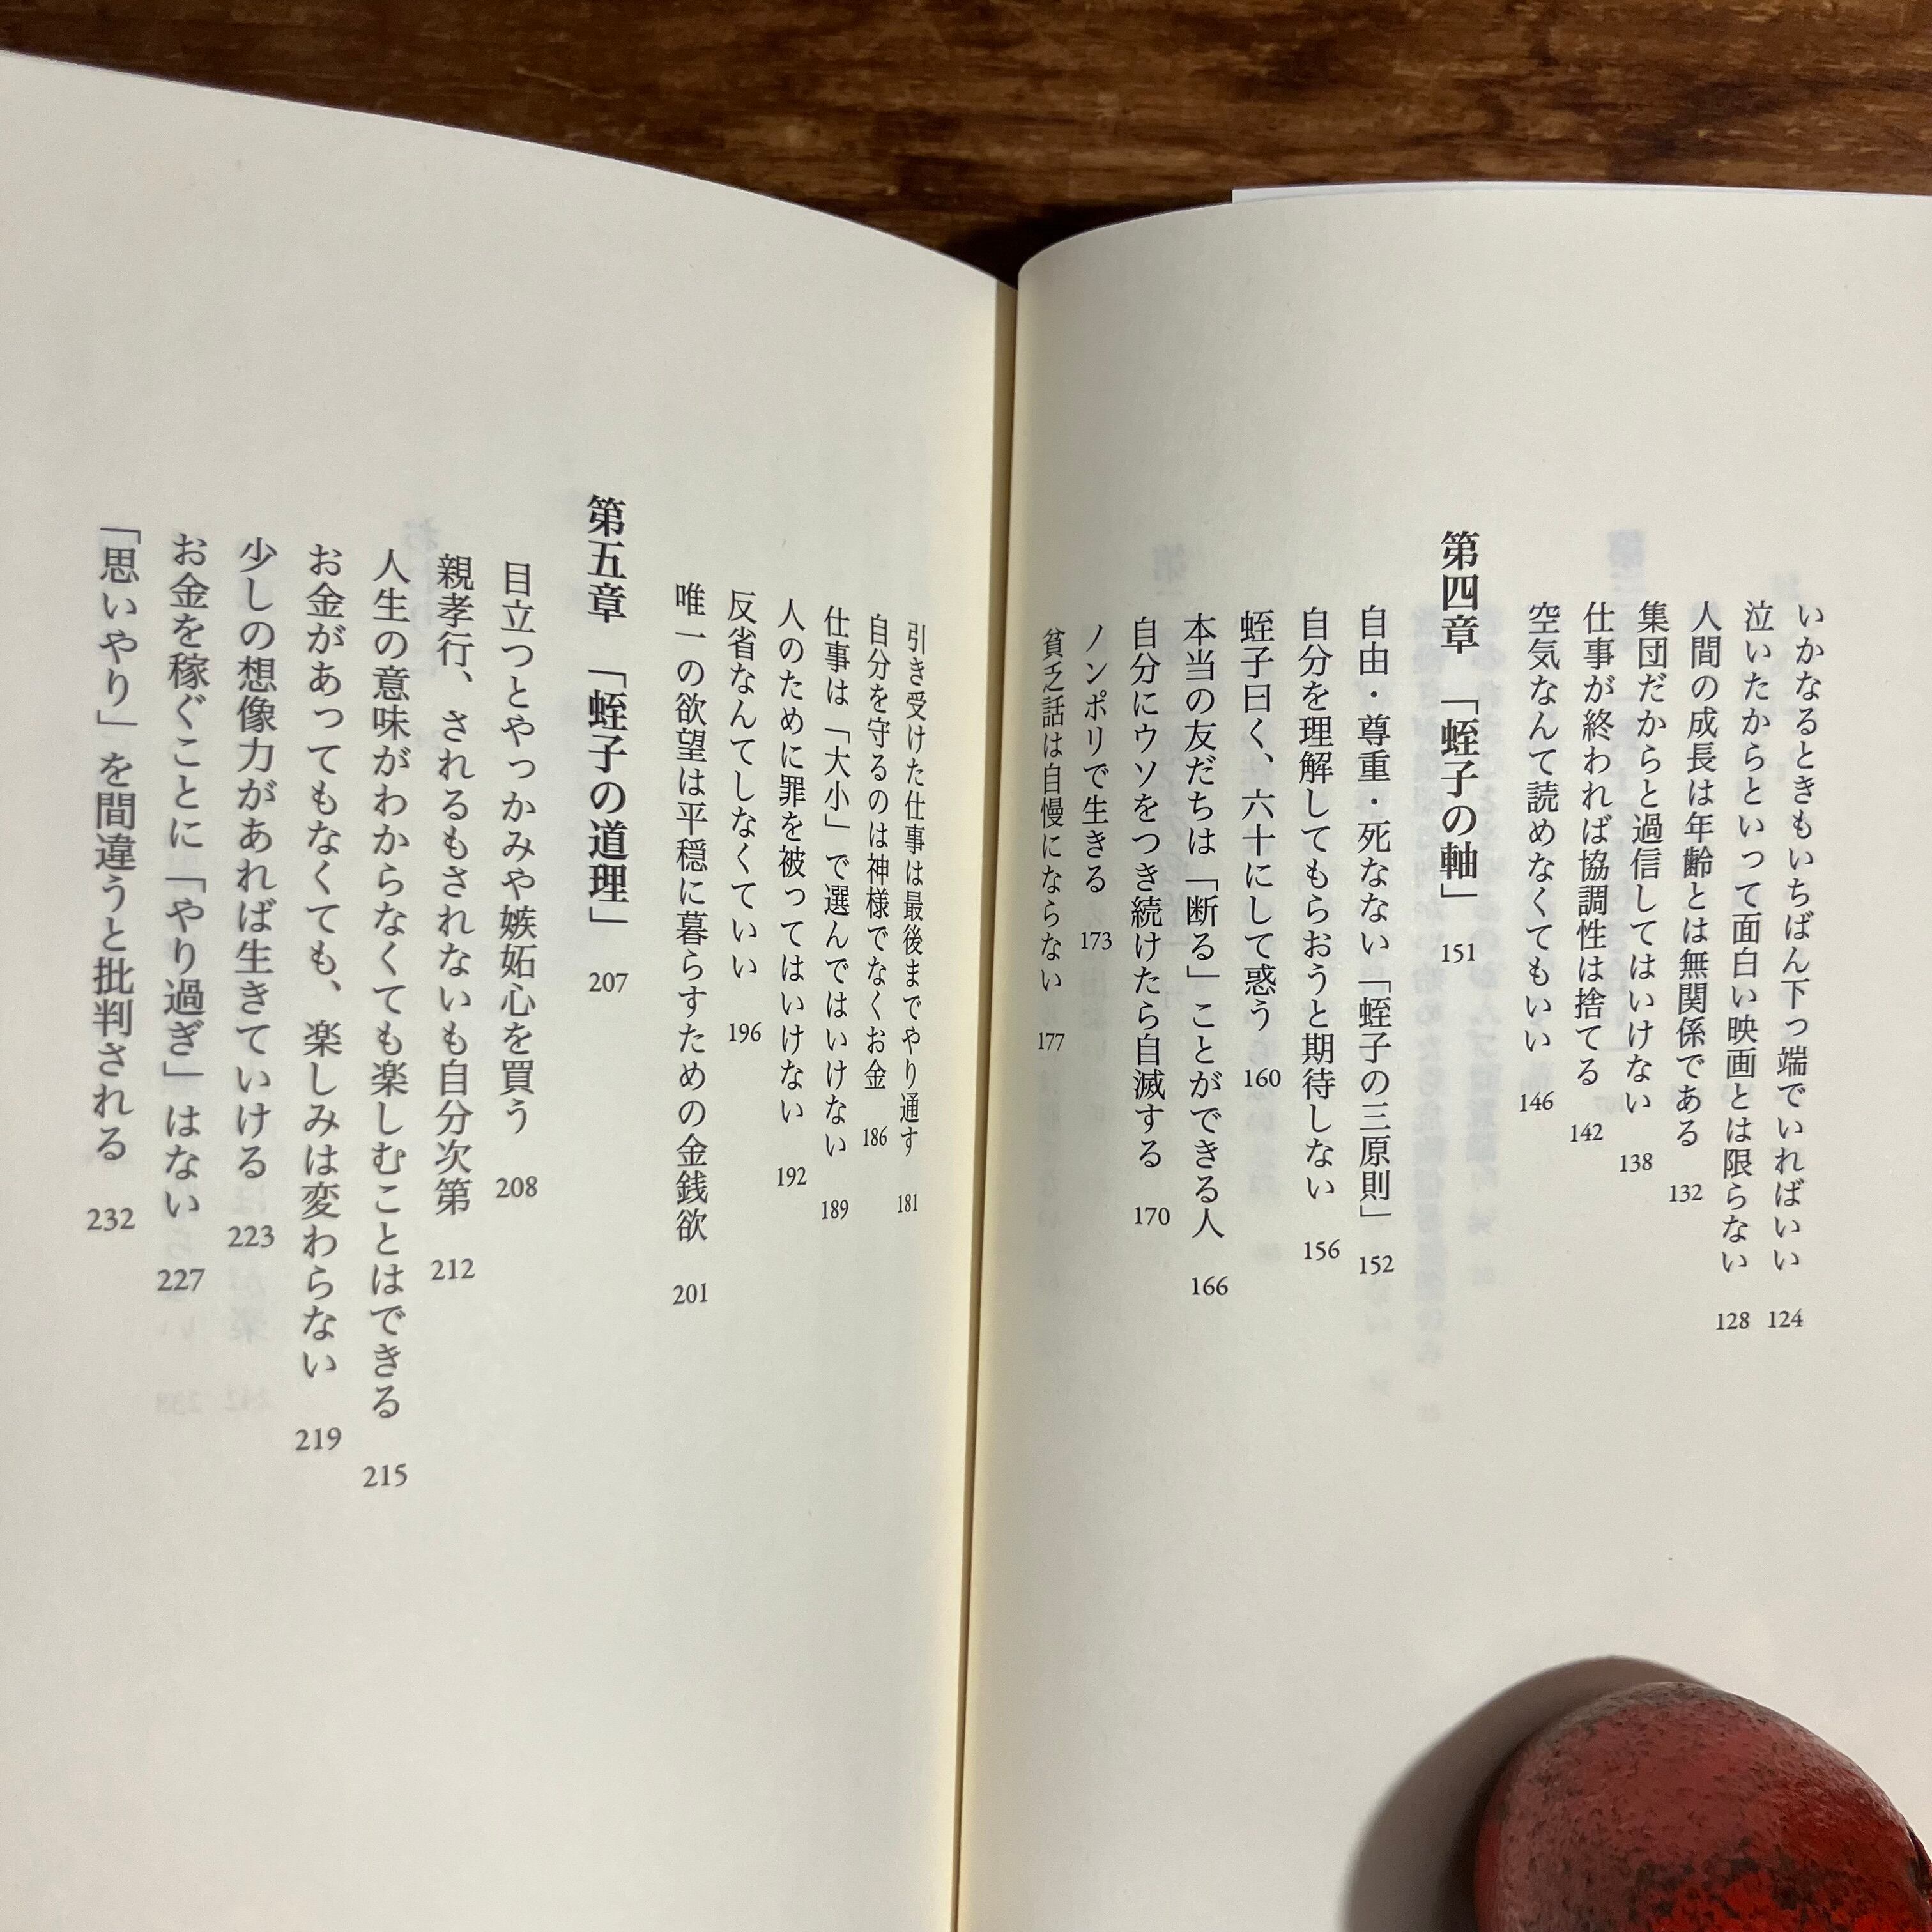 いかなるときもいちばん下っ端でいればいい 124
泣いたからといって面白い映画とは限らない 128
人間の成長は年齢とは無関係である 132
集団だからと過信してはいけない 138
仕事が終われば協調性は捨てる 142
空気なんて読めなくてもいい 146
第四章 「蛭子の軸」 151
自由・尊重・死なない「蛭子の三原則」 152
自分を理解してもらおうと期待しない 156
蛭子曰く、六十にして惑う 160
本当の友だちは「断る」ことができる人 166
自分にウソをつき続けたら自滅する 170
ノンポリで生きる 173
貧乏話は自慢にならない 177
引き受けた仕事は最後までやり通す 181
自分を守るのは神様でなくお金 186
仕事は「大小」で選んではいけない 189
人のために罪を被ってはいけない 192
反省なんてしなくていい 196
唯一の欲望は平穏に暮らすための金銭欲 201
第五章 「蛭子の道理」 207
目立つとやっかみや嫉妬心を買う 208
親孝行、されるもされないも自分次第 212
人生の意味がわからなくても楽しむことはできる 215
お金があってもなくても、楽しみは変わらない 219
少しの想像力があれば生きていける 223
お金を稼ぐことに「やり過ぎ」はない 227
「思いやり」を間違うと批判される 232